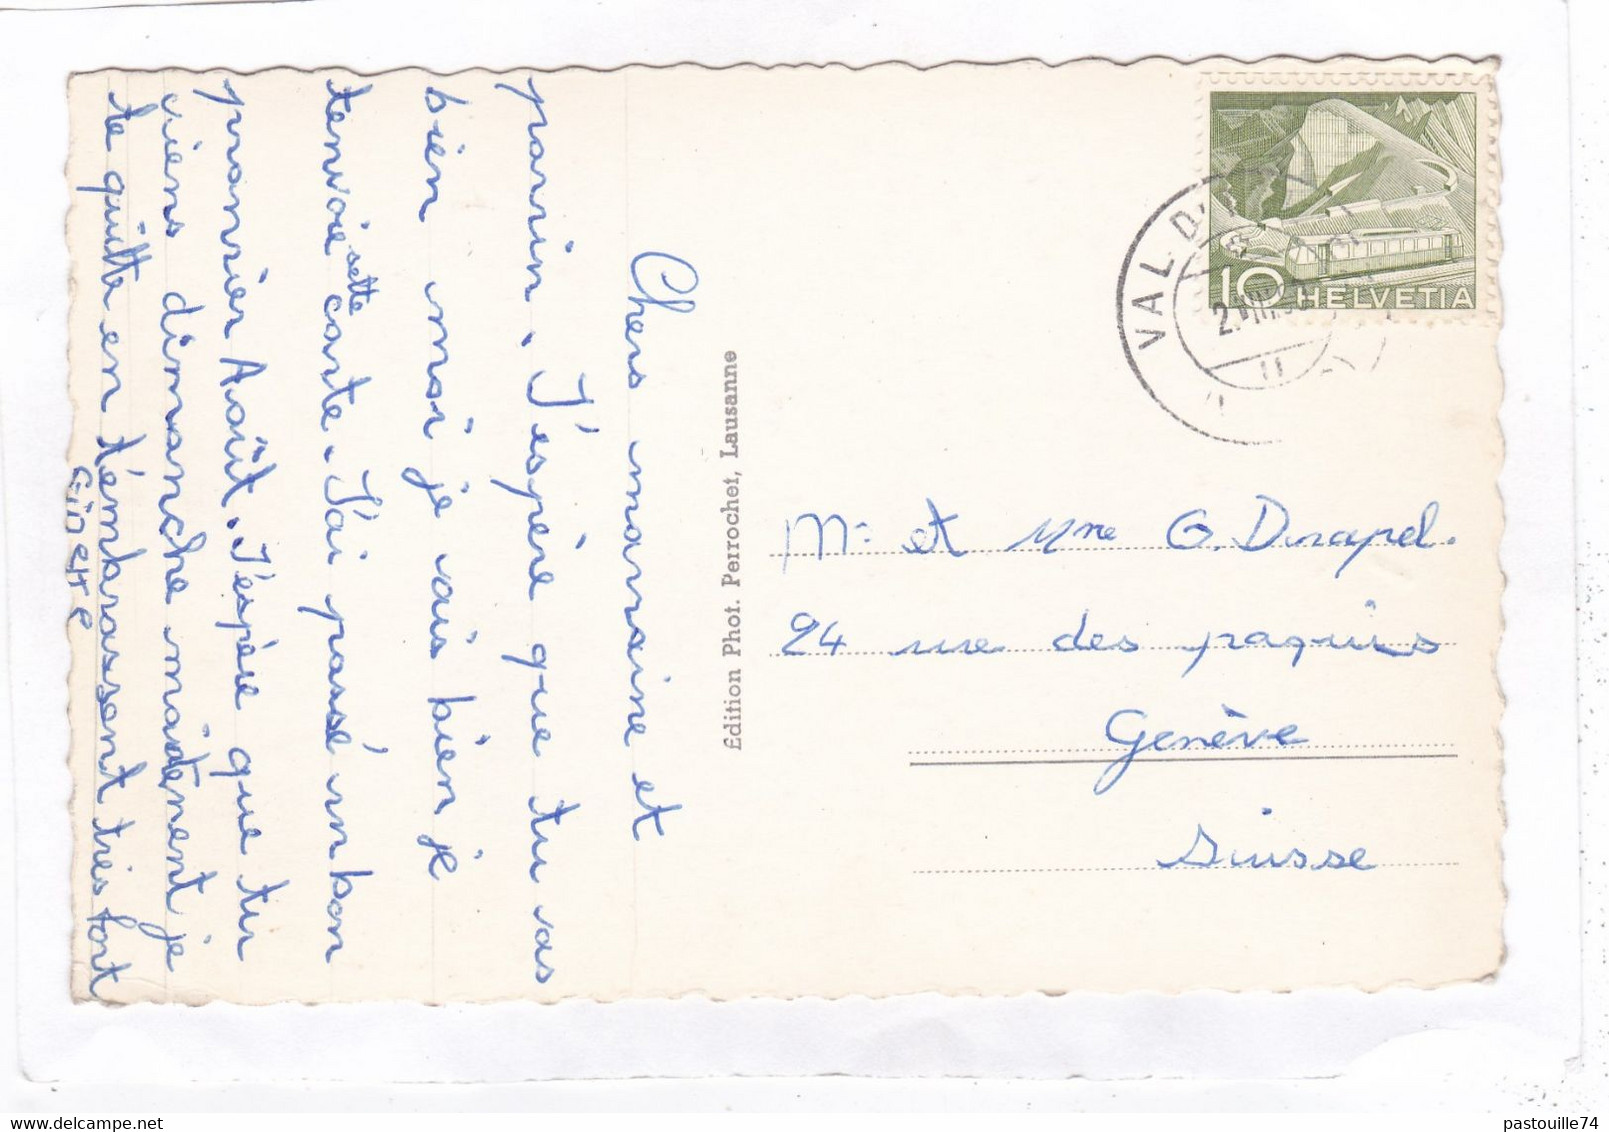 Chers marraine et
parrin. J'espère que tu vas
bien moi je vais bien je
tenvoie sette carte. J'ai passé un bon
promier Août. J'espére que tu
viens dimanche maidenent je
te quitte en t'embrassent très fort
Edition Phot. Perrochet, Lausanne
VAL D'
10 HELVETIA
Mr et Mme G. Durapel.
24 rue des paquis
Genève
Suisse
pastouille74